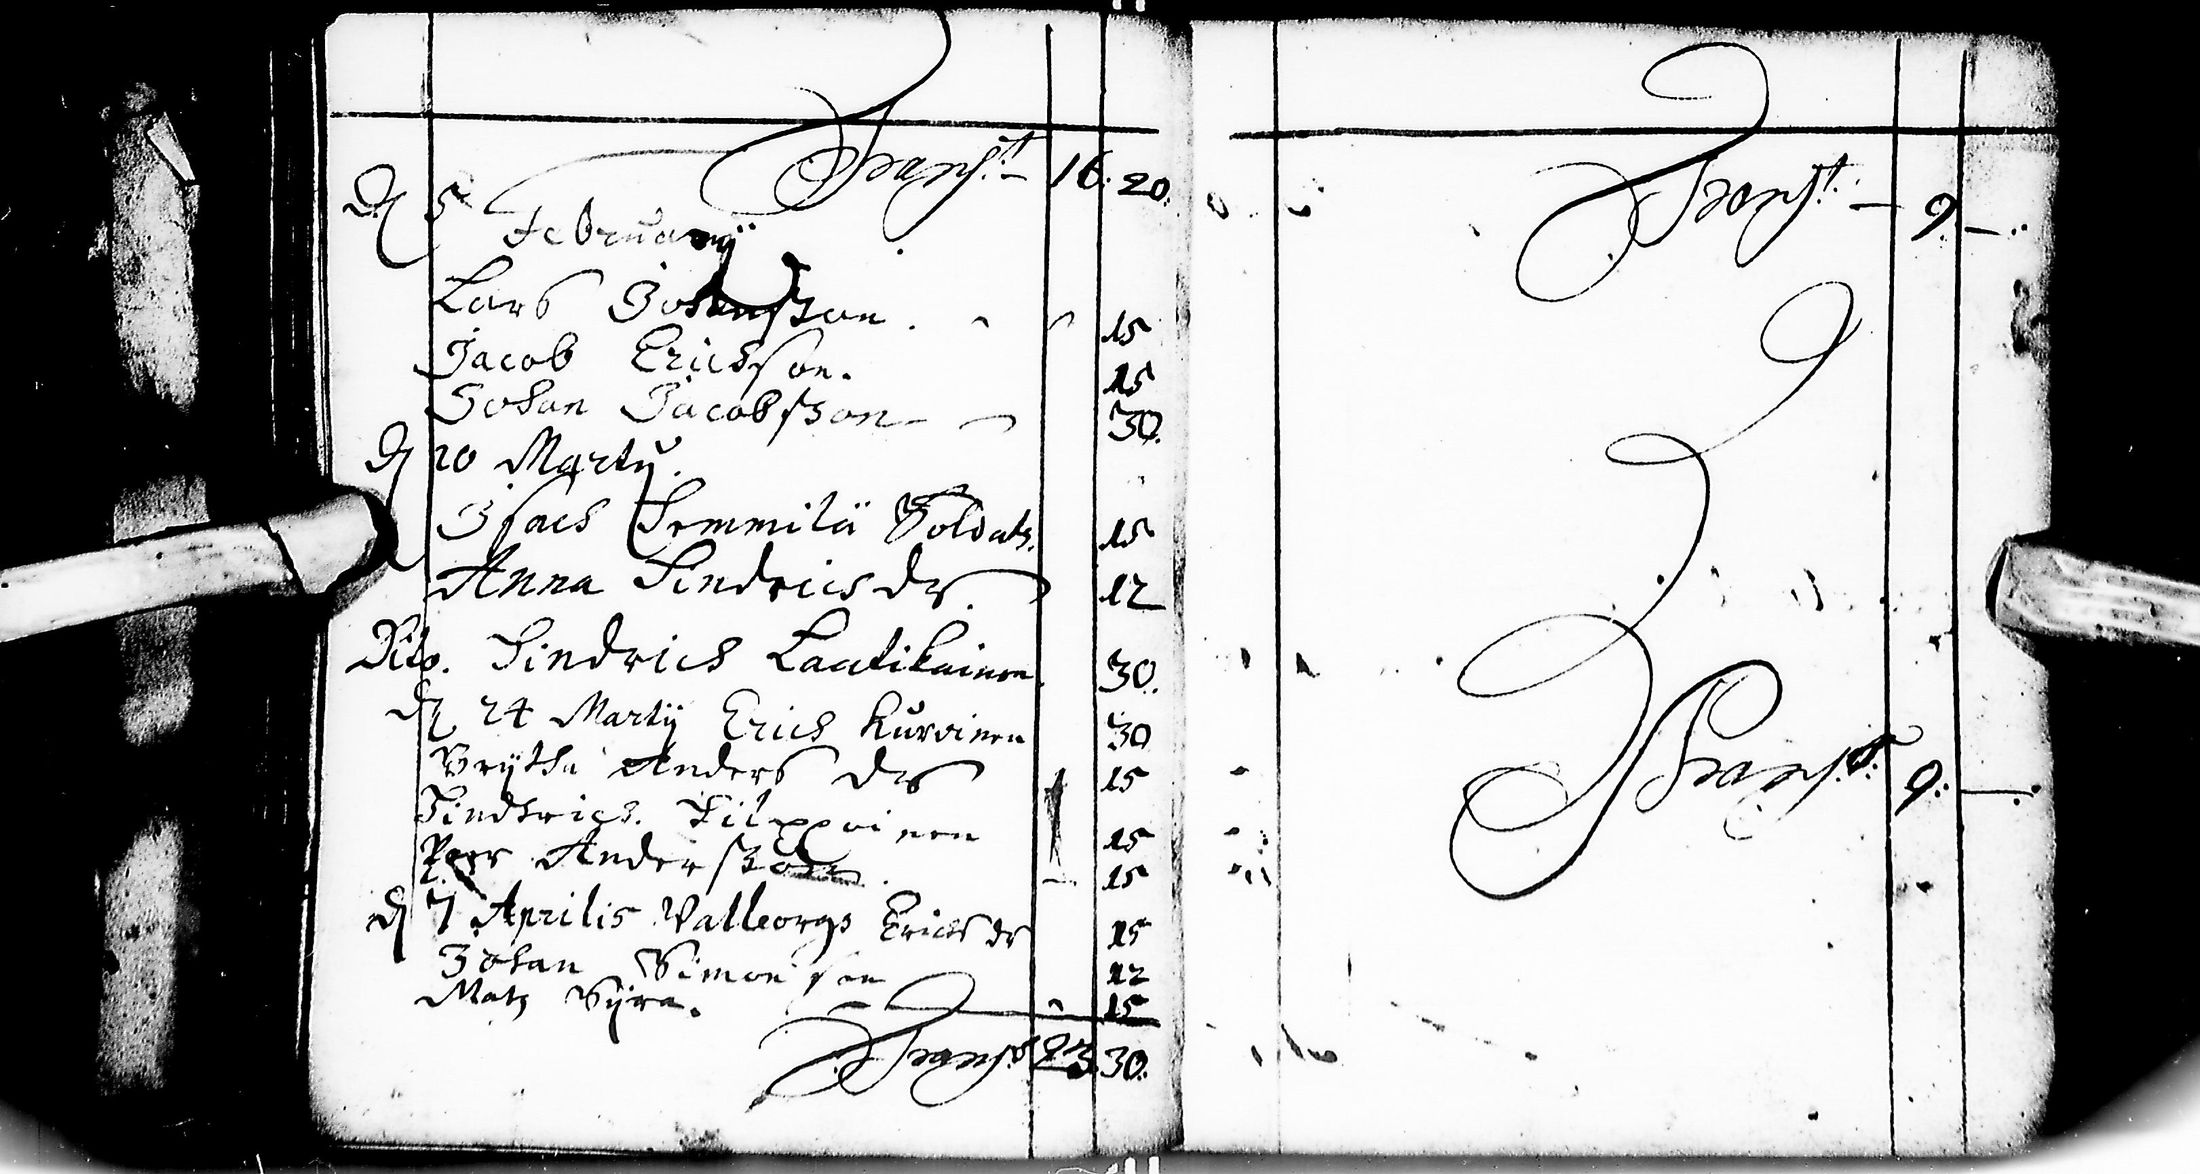 Transpt. — 16: 20:
D 5 Februarij
Lars Johansson. 15
Jacob Ericsson. 15
Johan Jacobsson — 30.
D 20 Martij.
Isacs Soldats. 15
Anna Hindrics dr. 12
Dito. Hindrich Lautikainen. 30.
D 24 Martij Erich Kurvinen 30
Brÿtha Anders dr 15
Hindrics. Filppoinen 15
Peer Andersson. 15
D 7 Aprilis Valborgs Erichs dr 15
Johan Simonsson 12
Matz Sÿra. 15
Transpt 23 30:
Transpt. — 9. — ..
Transpt. 9: — ..